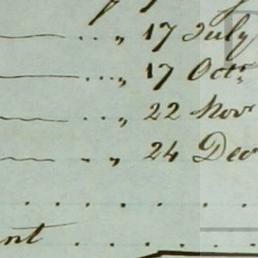 — .. „ 17 July
— ... „ 17 Octr
— .. „ 22 Novr
— .. „ 24 Decr
. . . . . . .
nt . . . . .